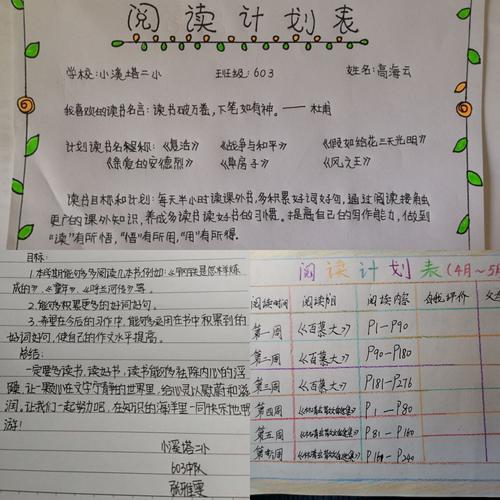 阅读计划表
学校:小溪塔二小 班级:603 姓名:高海云
我喜欢的读书名言:读书破万卷,下笔如有神。——杜甫
计划读书名称:《复活》 《战争与和平》 《假如给我三天光明》
《亲爱的安德烈》 《草房子》 《风之王》
读书目标和计划:每天半小时读课外书,多积累好词好句,通过阅读接触
更广的课外知识,养成多读书读好书的习惯。提高自己的写作能力,做到
“读”有所悟,“悟”有所用,“用”有所得.
目标:
1.本学期能够多多阅读几本书例如:《钢铁是怎样炼
成的》、《童年》、《呼兰河传》等。
2.能够积累更多的好词好句。
3.希望在今后的习作中,能够运用在书中积累到的
好词好句,使自己的作文水平提高。
总结:
一定要读书,读好书,读书能够祛除内心的浮
躁,让一颗心在文字宁静的世界里,给心灵以慰藉和滋
润,让我们一起努力吧,在知识的海洋里一同快乐地畅
游!
小溪塔二小
603中队
张雅雯
阅读计划表(4月~5月
阅读时间 阅读书目 阅读内容 自我评价 父
第一周 《百慕大》 P1-P90
第二周 《百慕大》 P90-P180
第三周 《百慕大》 P181-P276
第四周 P1-P80
第五周 P81-P160
第六周 P161-P240